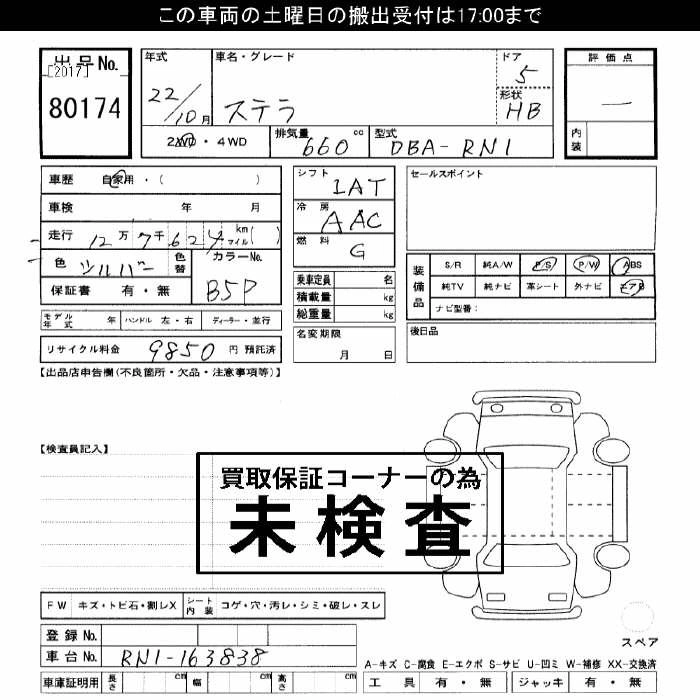 この車両の土曜日の搬出受付は17:00まで
出品No.
[2017]
80174
年式
22/10月
車名・グレード
ステラ
ドア
5
形状
HB
評価点
—
内装
2WD・4WD
排気量
660 cc
型式
DBA-RN1
車歴 自家用・( )
車検 年 月
走行 12万7千624 km マイル( )
色 シルバー 色替
カラーNo.
B5P
保証書 有・無
モデル年式 年 ハンドル 左・右 ディーラー・並行
リサイクル料金 9850 円 預託済
シフト
IAT
冷房
AAC
燃料
G
乗車定員 名
積載量 kg
総重量 kg
名変期限
月 日
セールスポイント
装備品
S/R 純A/W P/S P/W ABS
純TV 純ナビ 革シート 外ナビ エアB
ナビ型番:
後日品
【出品店申告欄(不良箇所・欠品・注意事項等)】
【検査員記入】
買取保証コーナーの為
未検査
FW キズ・トビ石・割レX シート内装 コゲ・穴・汚レ・シミ・破レ・スレ
登録No.
車台No. RN1-163838
車庫証明用 長さ cm 幅 cm 高さ cm
スペア
A-キズ C-腐食 E-エクボ S-サビ U-凹ミ W-補修 XX-交換済
工具 有・無 ジャッキ 有・無